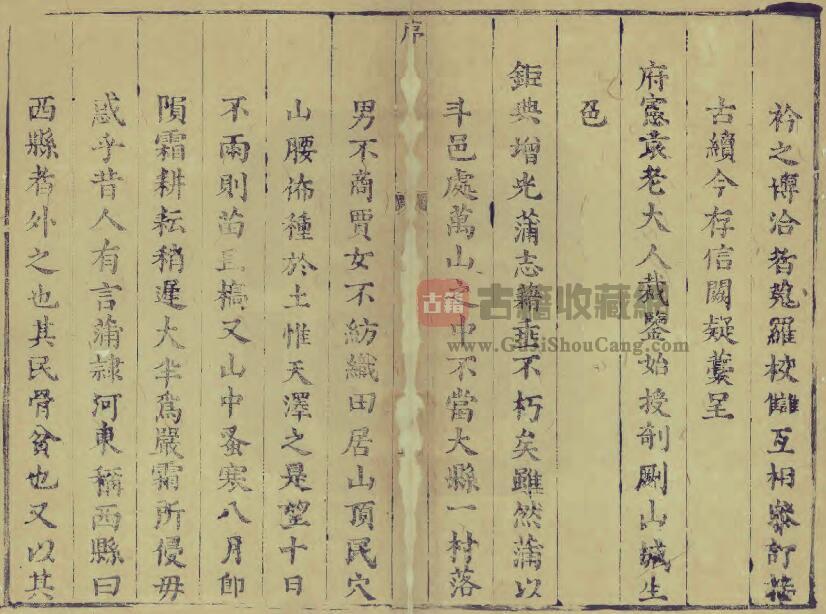 衿之博洽者蒐羅校讎互相叅訂
古續今存信闕疑藁呈
府憲袁老大人裁鑒始授剞劂山城生
色
鉅典增光蒲志藉垂不朽矣雖然蒲以
斗邑處萬山之中不當大縣一村落
序
男不商賈女不紡織田居山頂民穴
山腰佈種於土惟天澤之是望十日
不雨則苗立槁又山中蚤寒八月卽
隕霜耕耘稍遲大半爲嚴霜所侵毋
惑乎昔人有言蒲隷河東稱西縣曰
西縣者外之也其民骨貧也又以其
古籍
古籍收藏
www.GujiShouCang.com